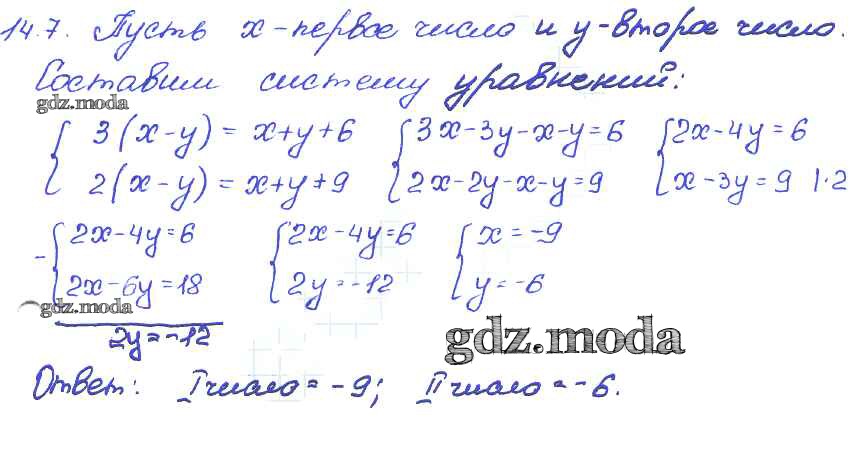 14.7. Пусть x - первое число и y - второе число.
Составим систему уравнений:
gdz.moda
{ 3(x-y) = x+y+6 { 3x-3y-x-y=6 { 2x-4y=6
{ 2(x-y) = x+y+9 { 2x-2y-x-y=9 { x-3y=9 |·2
- { 2x-4y=6 { 2x-4y=6 { x=-9
{ 2x-6y=18 { 2y=-12 { y=-6
gdz.moda
2y=-12
gdz.moda
Ответ: I число = -9; II число = -6.